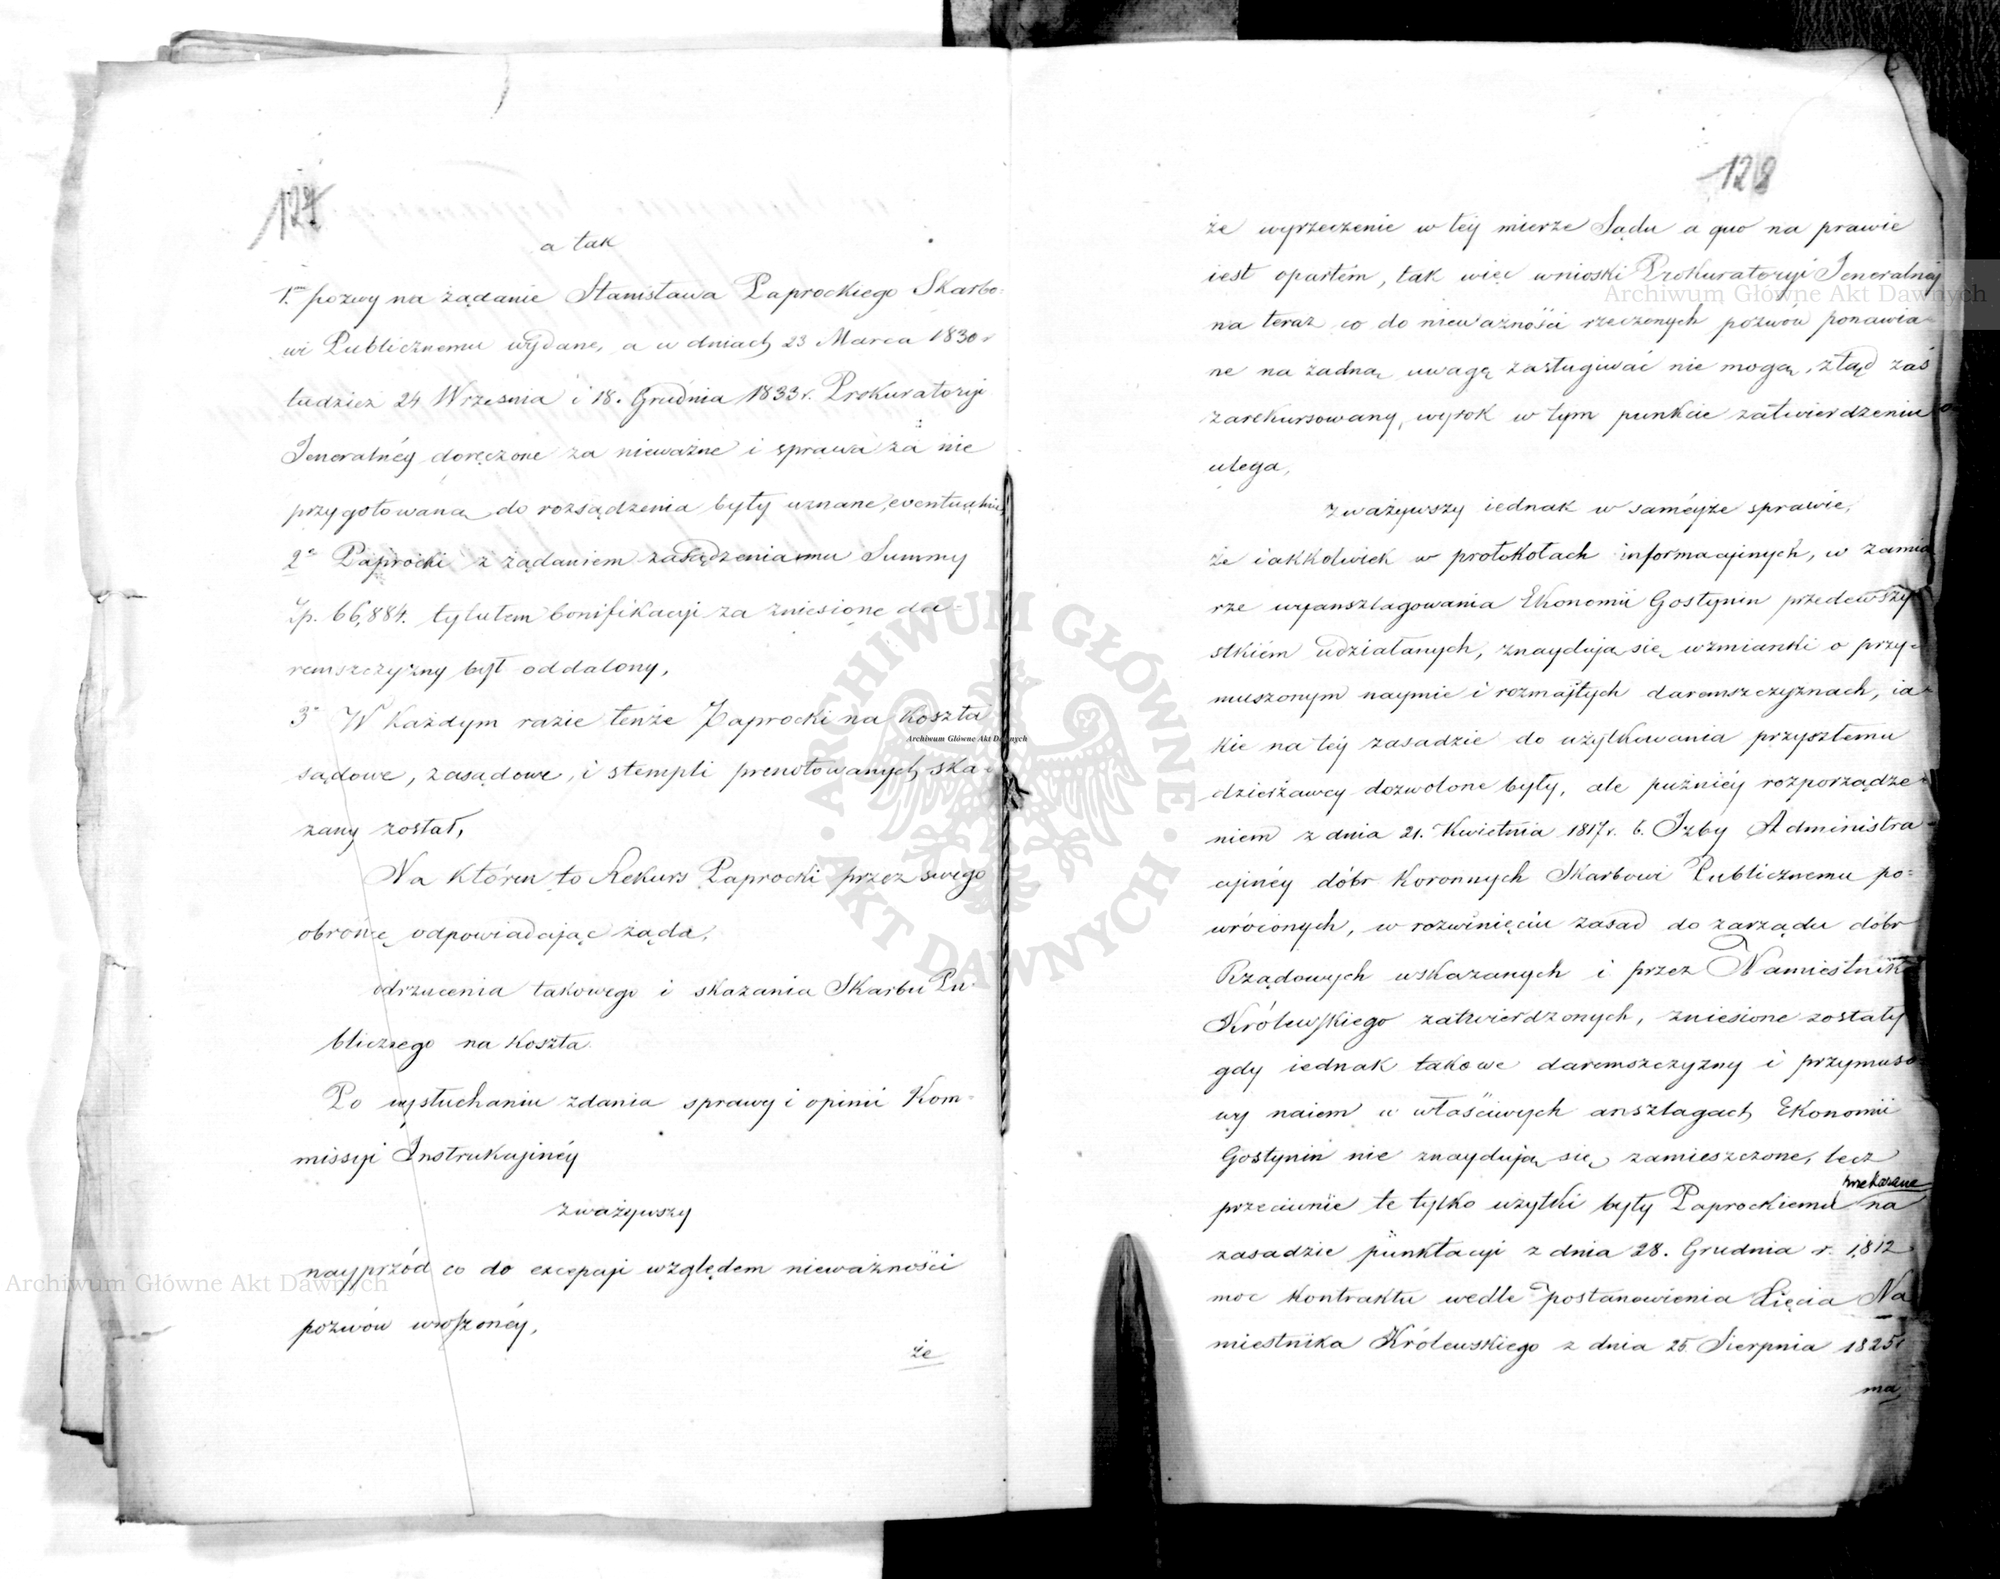 127
a tak
1.mo pozwy na żądanie Stanisława Paprockiego Skarbo-
wi Publicznemu wydane, a w dniach 23 Marca 1830 r
tudzież 24 Września i 18. Grudnia 1833 r. Prokuratoryi
Jeneralnéy doręczone za nieważne i sprawa za nie
przygotowaną do rozsądzenia były uznane, eventualnie
2o Paprocki z żądaniem zasądzenia mu Summy
Zp. 66,884. tytułem bonifikacyi za zniesione da-
remszczyzny był oddalony,
3o W każdym razie tenże Paprocki na koszta
sądowe, zasądowe, i stempli prenotowanych ska-
zany został,
Na któren to Rekurs Paprocki przez swego
obrońcę odpowiadając żąda,
odrzucenia takowego i skazania Skarbu Pu-
blicznego na koszta.
Po wysłuchaniu zdania sprawy i opinii Kom-
missyi Instrukcyinéy
zważywszy
nayprzód co do excepcyi względem nieważności
pozwów wnoszonéy,
że
128
że wyrzeczenie w téy mierze Sądu a quo na prawie
iest opartém, tak więc wnioski Prokuratoryi Jeneralnéy
na teraz co do nieważności rzeczonych pozwów ponawia-
ne na żadną uwagę zasługiwać nie mogą, ztąd zaś
zarekursowany wyrok w tym punkcie zatwierdzeniu
ulega,
Zważywszy iednak w saméyże sprawie,
że iakkolwiek w protokołach informacyinych, w zamia
rze wyanszlagowania Ekonomii Gostynin przedewszy
stkiém udziałanych, znayduią się wzmianki o przy-
muszonym naymie i rozmaitych daremszczyznach, ia-
kie na téy zasadzie do użytkowania przyszłemu
dzierżawcy dozwolone były, ale puźniéy rozporządze-
niem z dnia 21. Kwietnia 1817 r. b. Izby Administra-
cyinéy dóbr Koronnych Skarbowi Publicznemu po-
wróconych, w rozwinięciu zasad do zarządu dóbr
Rządowych wskazanych i przez Namiestnika
Królewskiego zatwierdzonych, zniesione zostały
gdy iednak takowe daremszczyzny i przymuso
wy naiem w właściwych anszlagach Ekonomii
Gostynin nie znayduią się zamieszczone, lecz
przeciwnie te tylko użytki były Paprockiemu przekazane na
zasadzie punktacyi z dnia 28. Grudnia r. 1812
moc kontraktu wedle postanowienia Xięcia Na
miestnika Królewskiego z dnia 25 Sierpnia 1825 r
ma,
Archiwum Główne Akt Dawnych
Archiwum Główne Akt Dawnych
Archiwum Główne Akt Dawnych
ARCHIWUM GŁÓWNE · AKT DAWNYCH ·